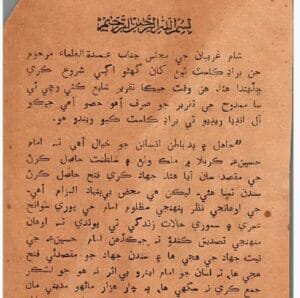 بسم الله الرحمن الرحيم
شام غريبان جي مجلس جناب عمدة العلماء مرحوم
جن براڊ ڪاسٽ ٿيڻ کان گهڻو اڳي شروع ڪري
ڇڏيندا هئا. هن وقت جيڪا تقرير شايع ڪئي وڃي ٿي
سا ممدوح جي تقرير جو صرف اهو حصو آهي جيڪو
آل انڊيا ريڊيو تي براڊ ڪاسٽ ڪيو ويندو هو.
”جاهل ۽ بدباطن انسانن جو خيال آهي ته امام
حسينؑ ڪربلا ۾ ملڪ وٺڻ ۽ سلطنت حاصل ڪرڻ
جي مقصد سان آيا هئا. جهاد ڪري فتح حاصل ڪرڻ
سندن تمنا هئي۔ ليڪن هي محض بي‌بنياد الزام آهي۔
جي اوهانجي نظر پنهنجي مظلوم امام جي پوري سوانح
عمري ۽ سموري حالات زندگي تي پوندي ته اوهان
منهنجي تصديق ڪندؤ ته جيڪڏهن امام حسينؑ جي
نيت جهاد جي هجي ها ۽ سندن جهاد جو مقصد ئي فتح
هجي ها ته انسان جو امام ايترو بي اثر نه هو جو لشڪر
جمع ڪري نه سگهي ها۔ يه چار هزار ماڻهو مديني مان